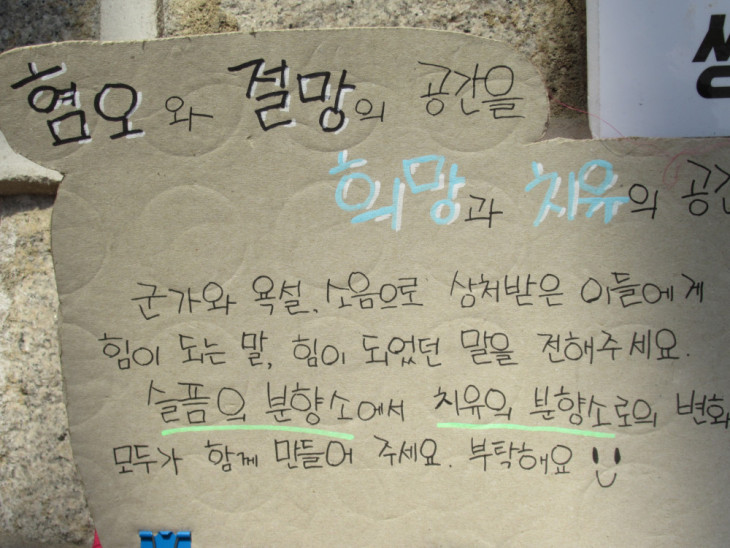 혐오와 절망의 공간을
희망과 치유의 공간
군가와 욕설, 소음으로 상처받은 이들에게
힘이 되는 말, 힘이 되었던 말을 전해주세요.
슬픔의 분향소에서 치유의 분향소로의 변화
모두가 함께 만들어 주세요. 부탁해요